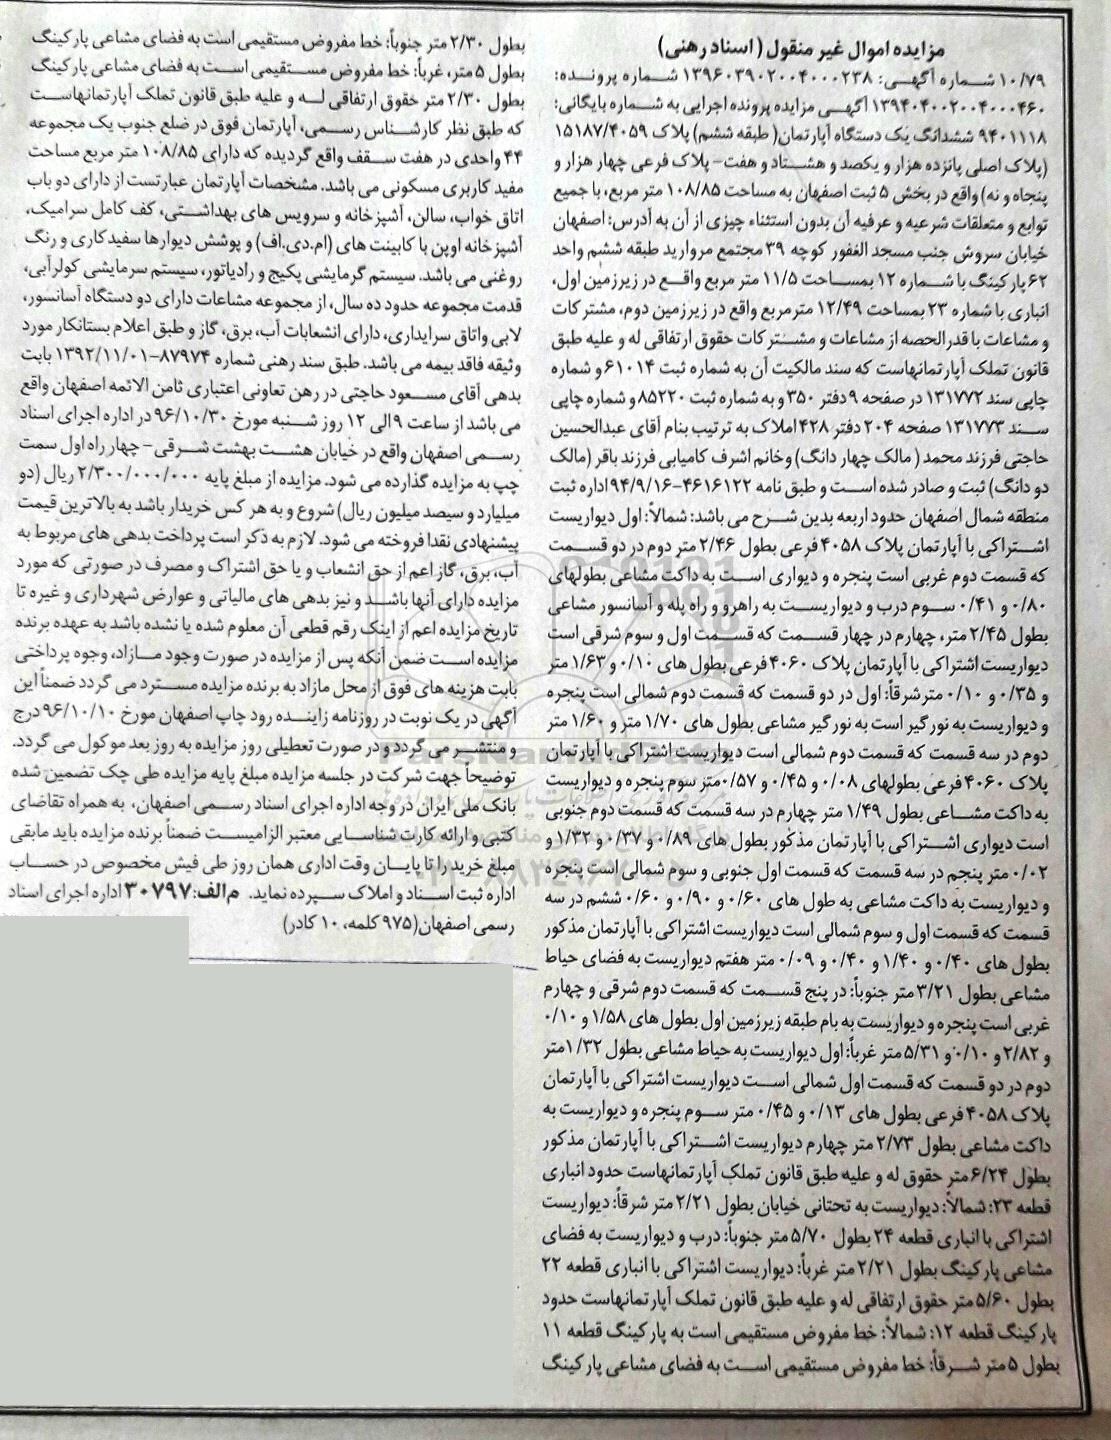 مزایده اموال غیر منقول (اسناد رهنی)
۱۰/۷۹ شماره آگهی: ۱۳۹۶۰۳۹۰۲۰۰۴۰۰۰۲۳۸ شماره پرونده:
۱۳۹۴۰۴۰۰۲۰۰۴۰۰۰۴۶۰ آگهی مزایده پرونده اجرایی به شماره بایگانی:
۹۴۰۱۱۱۸ ششدانگ یک دستگاه آپارتمان( طبقه ششم) پلاک ۱۵۱۸۷/۴۰۵۹
(پلاک اصلی پانزده هزار و یکصد و هشتاد و هفت- پلاک فرعی چهار هزار و
پنجاه و نه) واقع در بخش ۵ ثبت اصفهان به مساحت ۱۰۸/۸۵ متر مربع، با جمیع
توابع و متعلقات شرعیه و عرفیه آن بدون استثناء چیزی از آن به آدرس: اصفهان
خیابان سروش جنب مسجد الغفور کوچه ۳۹ مجتمع مروارید طبقه ششم واحد
۶۲ پارکینگ با شماره ۱۲ بمساحت ۱۱/۵ متر مربع واقع در زیرزمین اول،
انباری با شماره ۲۳ بمساحت ۱۲/۴۹ مترمربع واقع در زیرزمین دوم، مشترکات
و مشاعات با قدرالحصه از مشاعات و مشترکات حقوق ارتفاقی له و علیه طبق
قانون تملک آپارتمانهاست که سند مالکیت آن به شماره ثبت ۶۱۰۱۴ و شماره
چاپی سند ۱۳۱۷۷۲ در صفحه ۹ دفتر ۳۵۰ و به شماره ثبت ۸۵۲۲۰ و شماره چاپی
سند ۱۳۱۷۷۳ صفحه ۲۰۴ دفتر ۴۲۸ املاک به ترتیب بنام آقای عبدالحسین
حاجتی فرزند محمد ( مالک چهار دانگ) وخانم اشرف کامیابی فرزند باقر (مالک
دو دانگ) ثبت و صادر شده است و طبق نامه ۴۶۱۶۱۲۲-۹۴/۹/۱۶ اداره ثبت
منطقه شمال اصفهان حدود اربعه بدین شرح می باشد: شمالاً: اول دیواریست
اشتراکی با آپارتمان پلاک ۴۰۵۸ فرعی بطول ۲/۴۶ متر دوم در دو قسمت
که قسمت دوم غربی است پنجره و دیواری است به داکت مشاعی بطولهای
۰/۸۰ و ۰/۴۱ سوم درب و دیواریست به راهرو و راه پله و آسانسور مشاعی
بطول ۲/۴۵ متر، چهارم در چهار قسمت که قسمت اول و سوم شرقی است
دیواریست اشتراکی با آپارتمان پلاک ۴۰۶۰ فرعی بطول های ۰/۱۰ و ۱/۶۳ متر
و ۰/۳۵ و ۰/۱۰ مترشرقاً: اول در دو قسمت که قسمت دوم شمالی است پنجره
و دیواریست به نورگیر است به نورگیر مشاعی بطول های ۱/۷۰ متر و ۱/۶۰ متر
دوم در سه قسمت که قسمت دوم شمالی است دیواریست اشتراکی با آپارتمان
پلاک ۴۰۶۰ فرعی بطولهای ۰/۰۸ و ۰/۴۵ و ۰/۵۷ متر سوم پنجره و دیواریست
به داکت مشاعی بطول ۱/۴۹ متر چهارم در سه قسمت که قسمت دوم جنوبی
است دیواری اشتراکی با آپارتمان مذکور بطول های ۰/۸۹ و ۰/۳۷ و ۱/۳۲ و
۰/۰۲ متر پنجم در سه قسمت که قسمت اول جنوبی و سوم شمالی است پنجره
و دیواریست به داکت مشاعی به طول های ۰/۶۰ و ۰/۹۰ و ۰/۶۰ ششم در سه
قسمت که قسمت اول و سوم شمالی است دیواریست اشتراکی با آپارتمان مذکور
بطول های ۰/۴۰ و ۱/۴۰ و ۰/۴۰ و ۰/۰۹ متر هفتم دیواریست به فضای حیاط
مشاعی بطول ۳/۲۱ متر جنوباً: در پنج قسمت که قسمت دوم شرقی و چهارم
غربی است پنجره و دیواریست به بام طبقه زیرزمین اول بطول های ۱/۵۸ و ۰/۱۰
و ۲/۸۲ و ۰/۱۰ و ۵/۳۱ متر غرباً: اول دیواریست به حیاط مشاعی بطول ۱/۳۲ متر
دوم در دو قسمت که قسمت اول شمالی است دیواریست اشتراکی با آپارتمان
پلاک ۴۰۵۸ فرعی بطول های ۰/۱۳ و ۰/۴۵ متر سوم پنجره و دیواریست به
داکت مشاعی بطول ۲/۷۳ متر چهارم دیواریست اشتراکی با آپارتمان مذکور
بطول ۶/۲۴ متر حقوق له و علیه طبق قانون تملک آپارتمانهاست حدود انباری
قطعه ۲۳: شمالاً: دیواریست به تحتانی خیابان بطول ۲/۲۱ متر شرقاً: دیواریست
اشتراکی با انباری قطعه ۲۴ بطول ۵/۷۰ متر جنوباً: درب و دیواریست به فضای
مشاعی پارکینگ بطول ۲/۲۱ متر غرباً: دیواریست اشتراکی با انباری قطعه ۲۲
بطول ۵/۶۰ متر حقوق ارتفاقی له و علیه طبق قانون تملک آپارتمانهاست حدود
پارکینگ قطعه ۱۲: شمالاً: خط مفروض مستقیمی است به پارکینگ قطعه ۱۱
بطول ۵ متر شرقاً: خط مفروض مستقیمی است به فضای مشاعی پارکینگ
بطول ۲/۳۰ متر جنوباً: خط مفروض مستقیمی است به فضای مشاعی پارکینگ
بطول ۵ متر، غرباً: خط مفروض مستقیمی است به فضای مشاعی پارکینگ
بطول ۲/۳۰ متر حقوق ارتفاقی له و علیه طبق قانون تملک آپارتمانهاست
که طبق نظر کارشناس رسمی، آپارتمان فوق در ضلع جنوب یک مجموعه
۴۴ واحدی در هفت سقف واقع گردیده که دارای ۱۰۸/۸۵ متر مربع مساحت
مفید کاربری مسکونی می باشد. مشخصات آپارتمان عبارتست از دارای دو باب
اتاق خواب، سالن، آشپزخانه و سرویس های بهداشتی، کف کامل سرامیک،
آشپزخانه اوپن با کابینت های (ام.دی.اف) و پوشش دیوارها سفیدکاری و رنگ
روغنی می باشد. سیستم گرمایشی پکیج و رادیاتور، سیستم سرمایشی کولرآبی،
قدمت مجموعه حدود ده سال، از مجموعه مشاعات دارای دو دستگاه آسانسور،
لابی واتاق سرایداری، دارای انشعابات آب، برق، گاز و طبق اعلام بستانکار مورد
وثیقه فاقد بیمه می باشد. طبق سند رهنی شماره ۸۷۹۷۴-۱۳۹۲/۱۱/۰۱ بابت
بدهی آقای مسعود حاجتی در رهن تعاونی اعتباری ثامن الائمه اصفهان واقع
می باشد از ساعت ۹ الی ۱۲ روز شنبه مورخ ۹۶/۱۰/۳۰ در اداره اجرای اسناد
رسمی اصفهان واقع در خیابان هشت بهشت شرقی- چهار راه اول سمت
چپ به مزایده گذارده می شود. مزایده از مبلغ پایه ۲/۳۰۰/۰۰۰/۰۰۰ ریال (دو
میلیارد و سیصد میلیون ریال) شروع و به هر کس خریدار باشد به بالاترین قیمت
پیشنهادی نقدا فروخته می شود. لازم به ذکر است پرداخت بدهی های مربوط به
آب، برق، گاز اعم از حق انشعاب و یا حق اشتراک و مصرف در صورتی که مورد
مزایده دارای آنها باشد و نیز بدهی های مالیاتی و عوارض شهرداری و غیره تا
تاریخ مزایده اعم از اینک رقم قطعی آن معلوم شده یا نشده باشد به عهده برنده
مزایده است ضمن آنکه پس از مزایده در صورت وجود مازاد، وجوه پرداختی
بابت هزینه های فوق از محل مازاد به برنده مزایده مسترد می گردد ضمناً این
آگهی در یک نوبت در روزنامه زاینده رود چاپ اصفهان مورخ ۹۶/۱۰/۱۰ درج
و منتشر می گردد و در صورت تعطیلی روز مزایده به روز بعد موکول می گردد.
توضیحاً جهت شرکت در جلسه مزایده مبلغ پایه مزایده طی چک تضمین شده
بانک ملی ایران در وجه اداره اجرای اسناد رسمی اصفهان، به همراه تقاضای
کتبی و ارائه کارت شناسایی معتبر الزامیست ضمناً برنده مزایده باید مابقی
مبلغ خرید را تا پایان وقت اداری همان روز طی فیش مخصوص در حساب
اداره ثبت اسناد و املاک سپرده نماید. م الف: ۳۰۷۹۷ اداره اجرای اسناد
رسمی اصفهان(۹۷۵ کلمه، ۱۰ کادر)